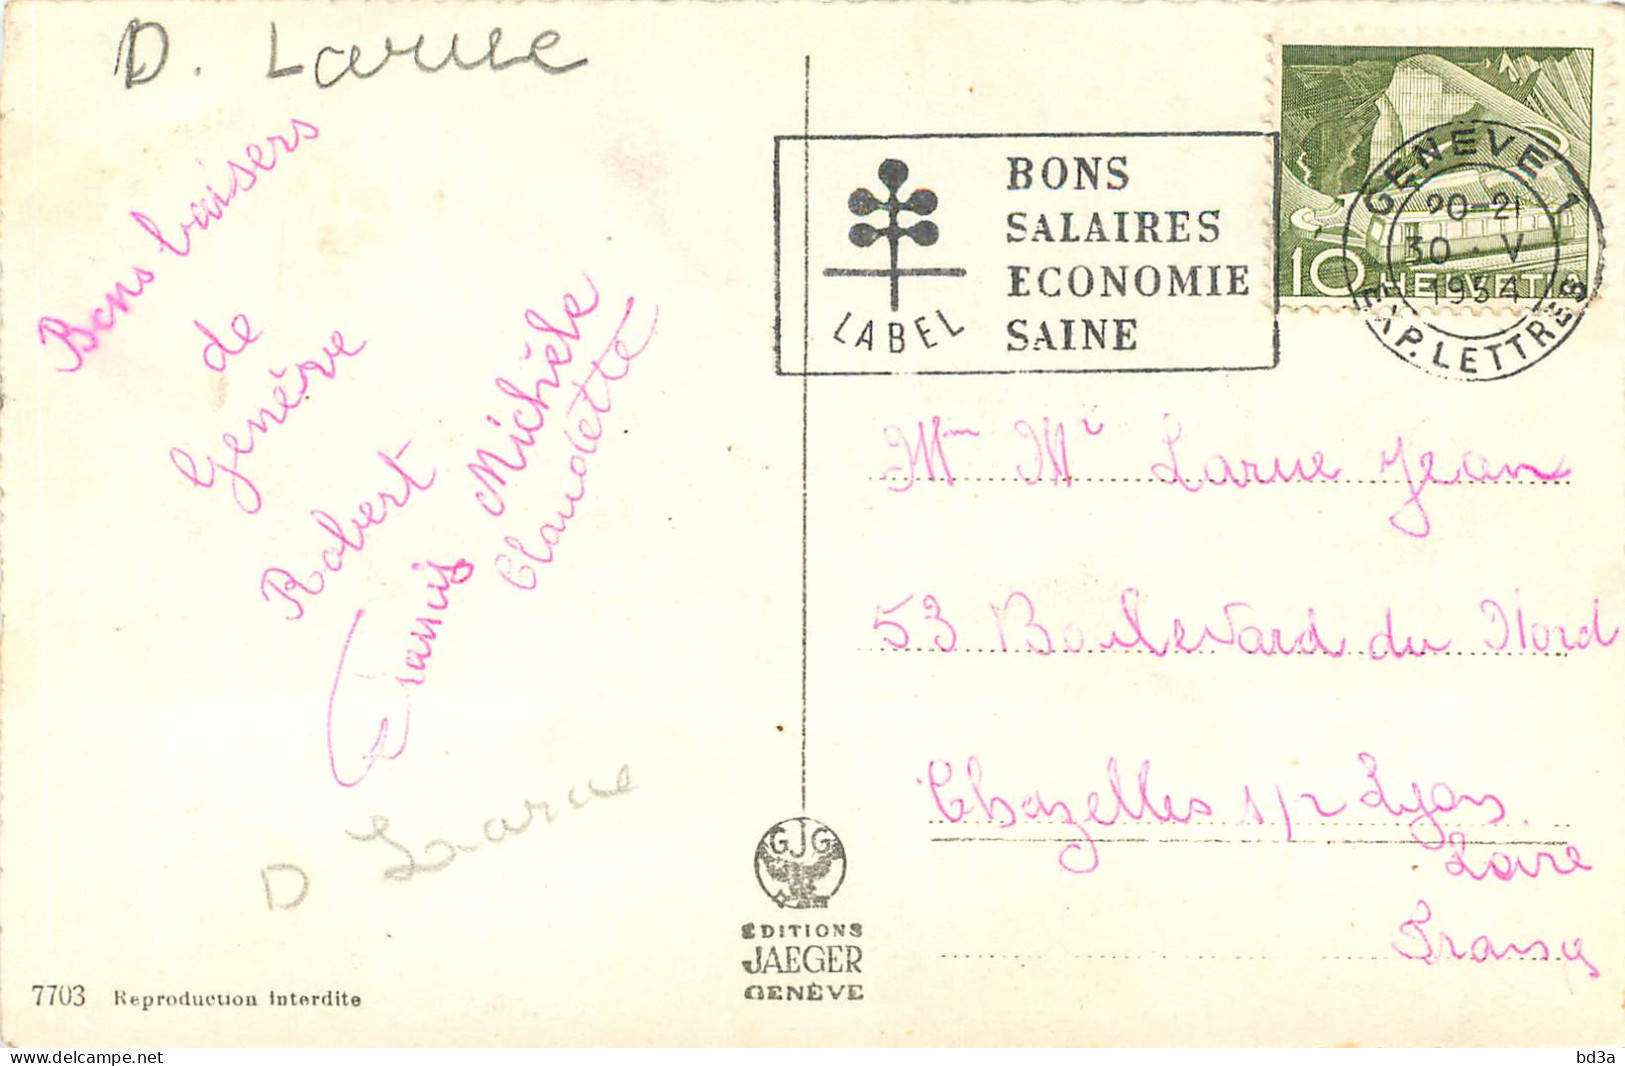 D. Larue
Bons baisers
de
Genève
Robert
Francis
Michèle
Claudette
D Larue
7703 Reproduction Interdite
GJG
ÉDITIONS
JAEGER
GENÈVE
LABEL
BONS
SALAIRES
ECONOMIE
SAINE
10 HELVETIA
GENÈVE 1
20-21
30 · V
1954
EXP. LETTRES
Mm Mr Larue Jean
53 Boulevard du Nord
Chazelles s/r Lyon.
Loire
France
delcampe.net
bd3a